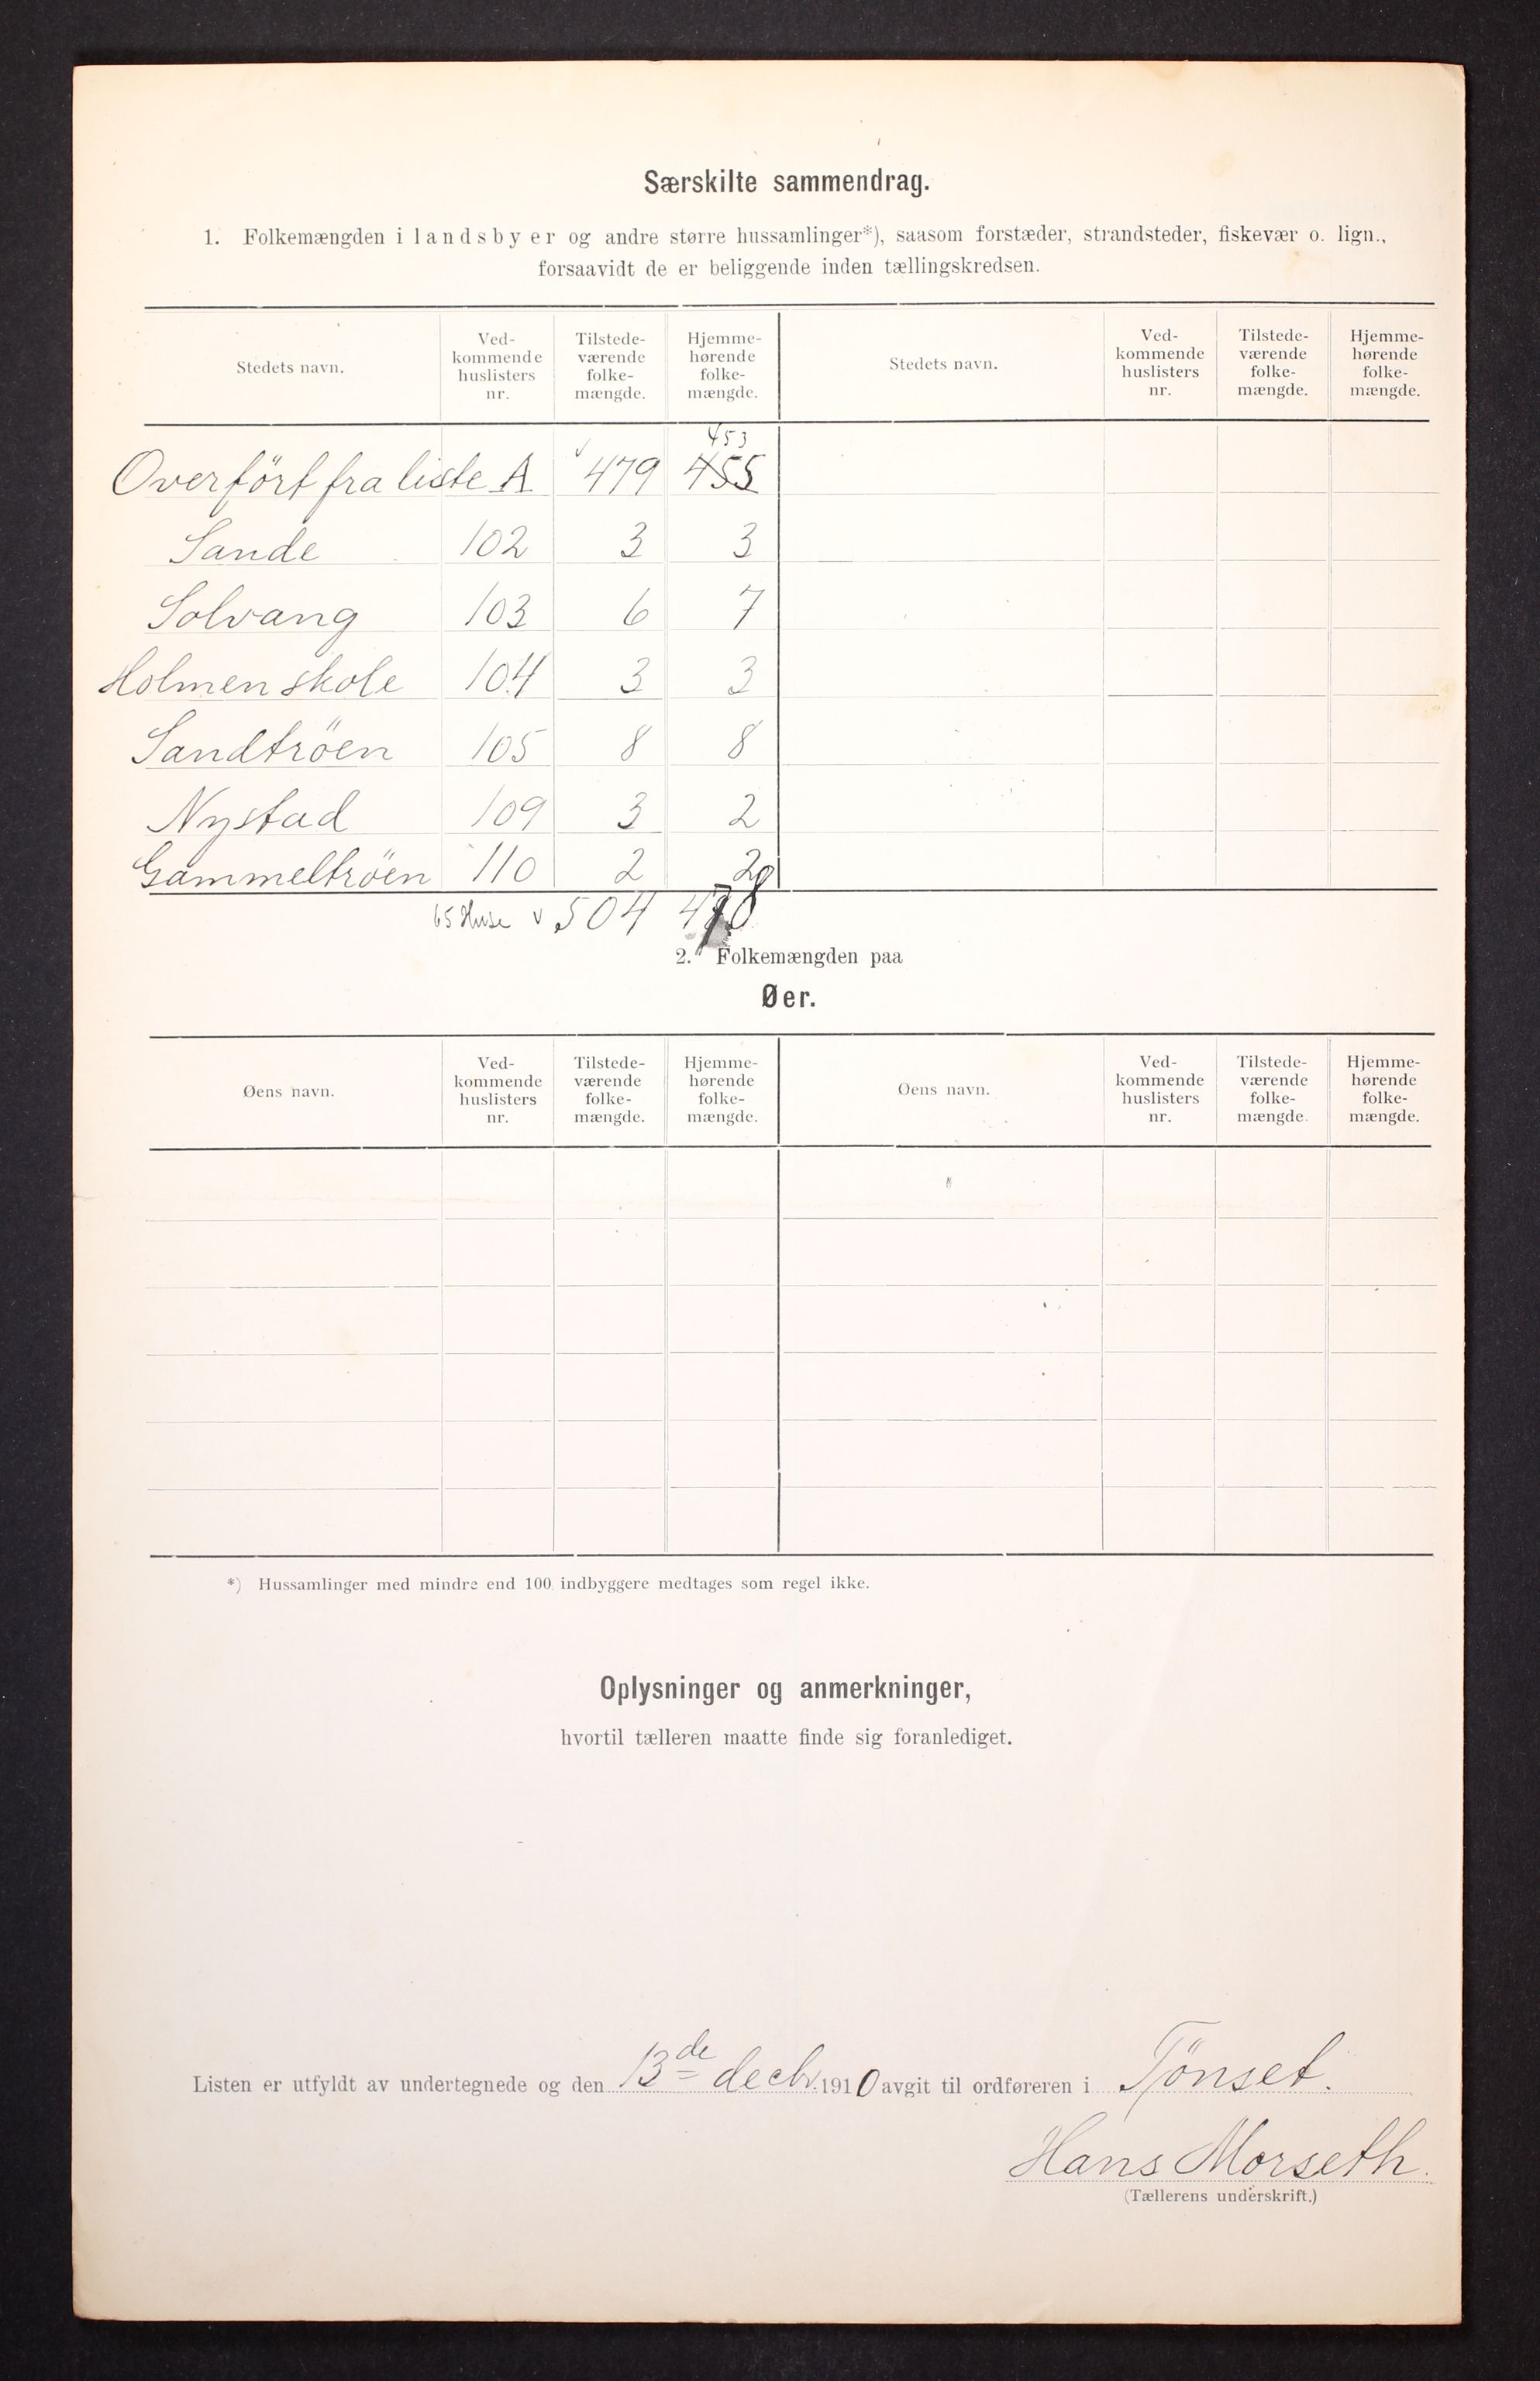 Særskilte sammendrag.
1. Folkemængden i landsbyer og andre større hussamlinger*), saasom forstæder, strandsteder, fiskevær o. lign.,
forsaavidt de er beliggende inden tællingskredsen.
Stedets navn. Ved-kommende huslisters nr. Tilstede-værende folke-mængde. Hjemme-hørende folke-mængde. Stedets navn. Ved-kommende huslisters nr. Tilstede-værende folke-mængde. Hjemme-hørende folke-mængde.
453
Overført fra liste A 479 455
Sande 102 3 3
Solvang 103 6 7
Holmen skole 104 3 3
Sandtröen 105 8 8
Nystad 109 3 2
Gammeltröen 110 2 2
65 Huse v 504 478
2. Folkemængden paa
Øer.
Øens navn. Ved-kommende huslisters nr. Tilstede-værende folke-mængde. Hjemme-hørende folke-mængde. Øens navn. Ved-kommende huslisters nr. Tilstede-værende folke-mængde. Hjemme-hørende folke-mængde.
*) Hussamlinger med mindre end 100 indbyggere medtages som regel ikke.
Oplysninger og anmerkninger,
hvortil tælleren maatte finde sig foranlediget.
Listen er utfyldt av undertegnede og den 13de decbr. 1910 avgit til ordføreren i Tönset.
Hans Morseth.
(Tællerens underskrift.)